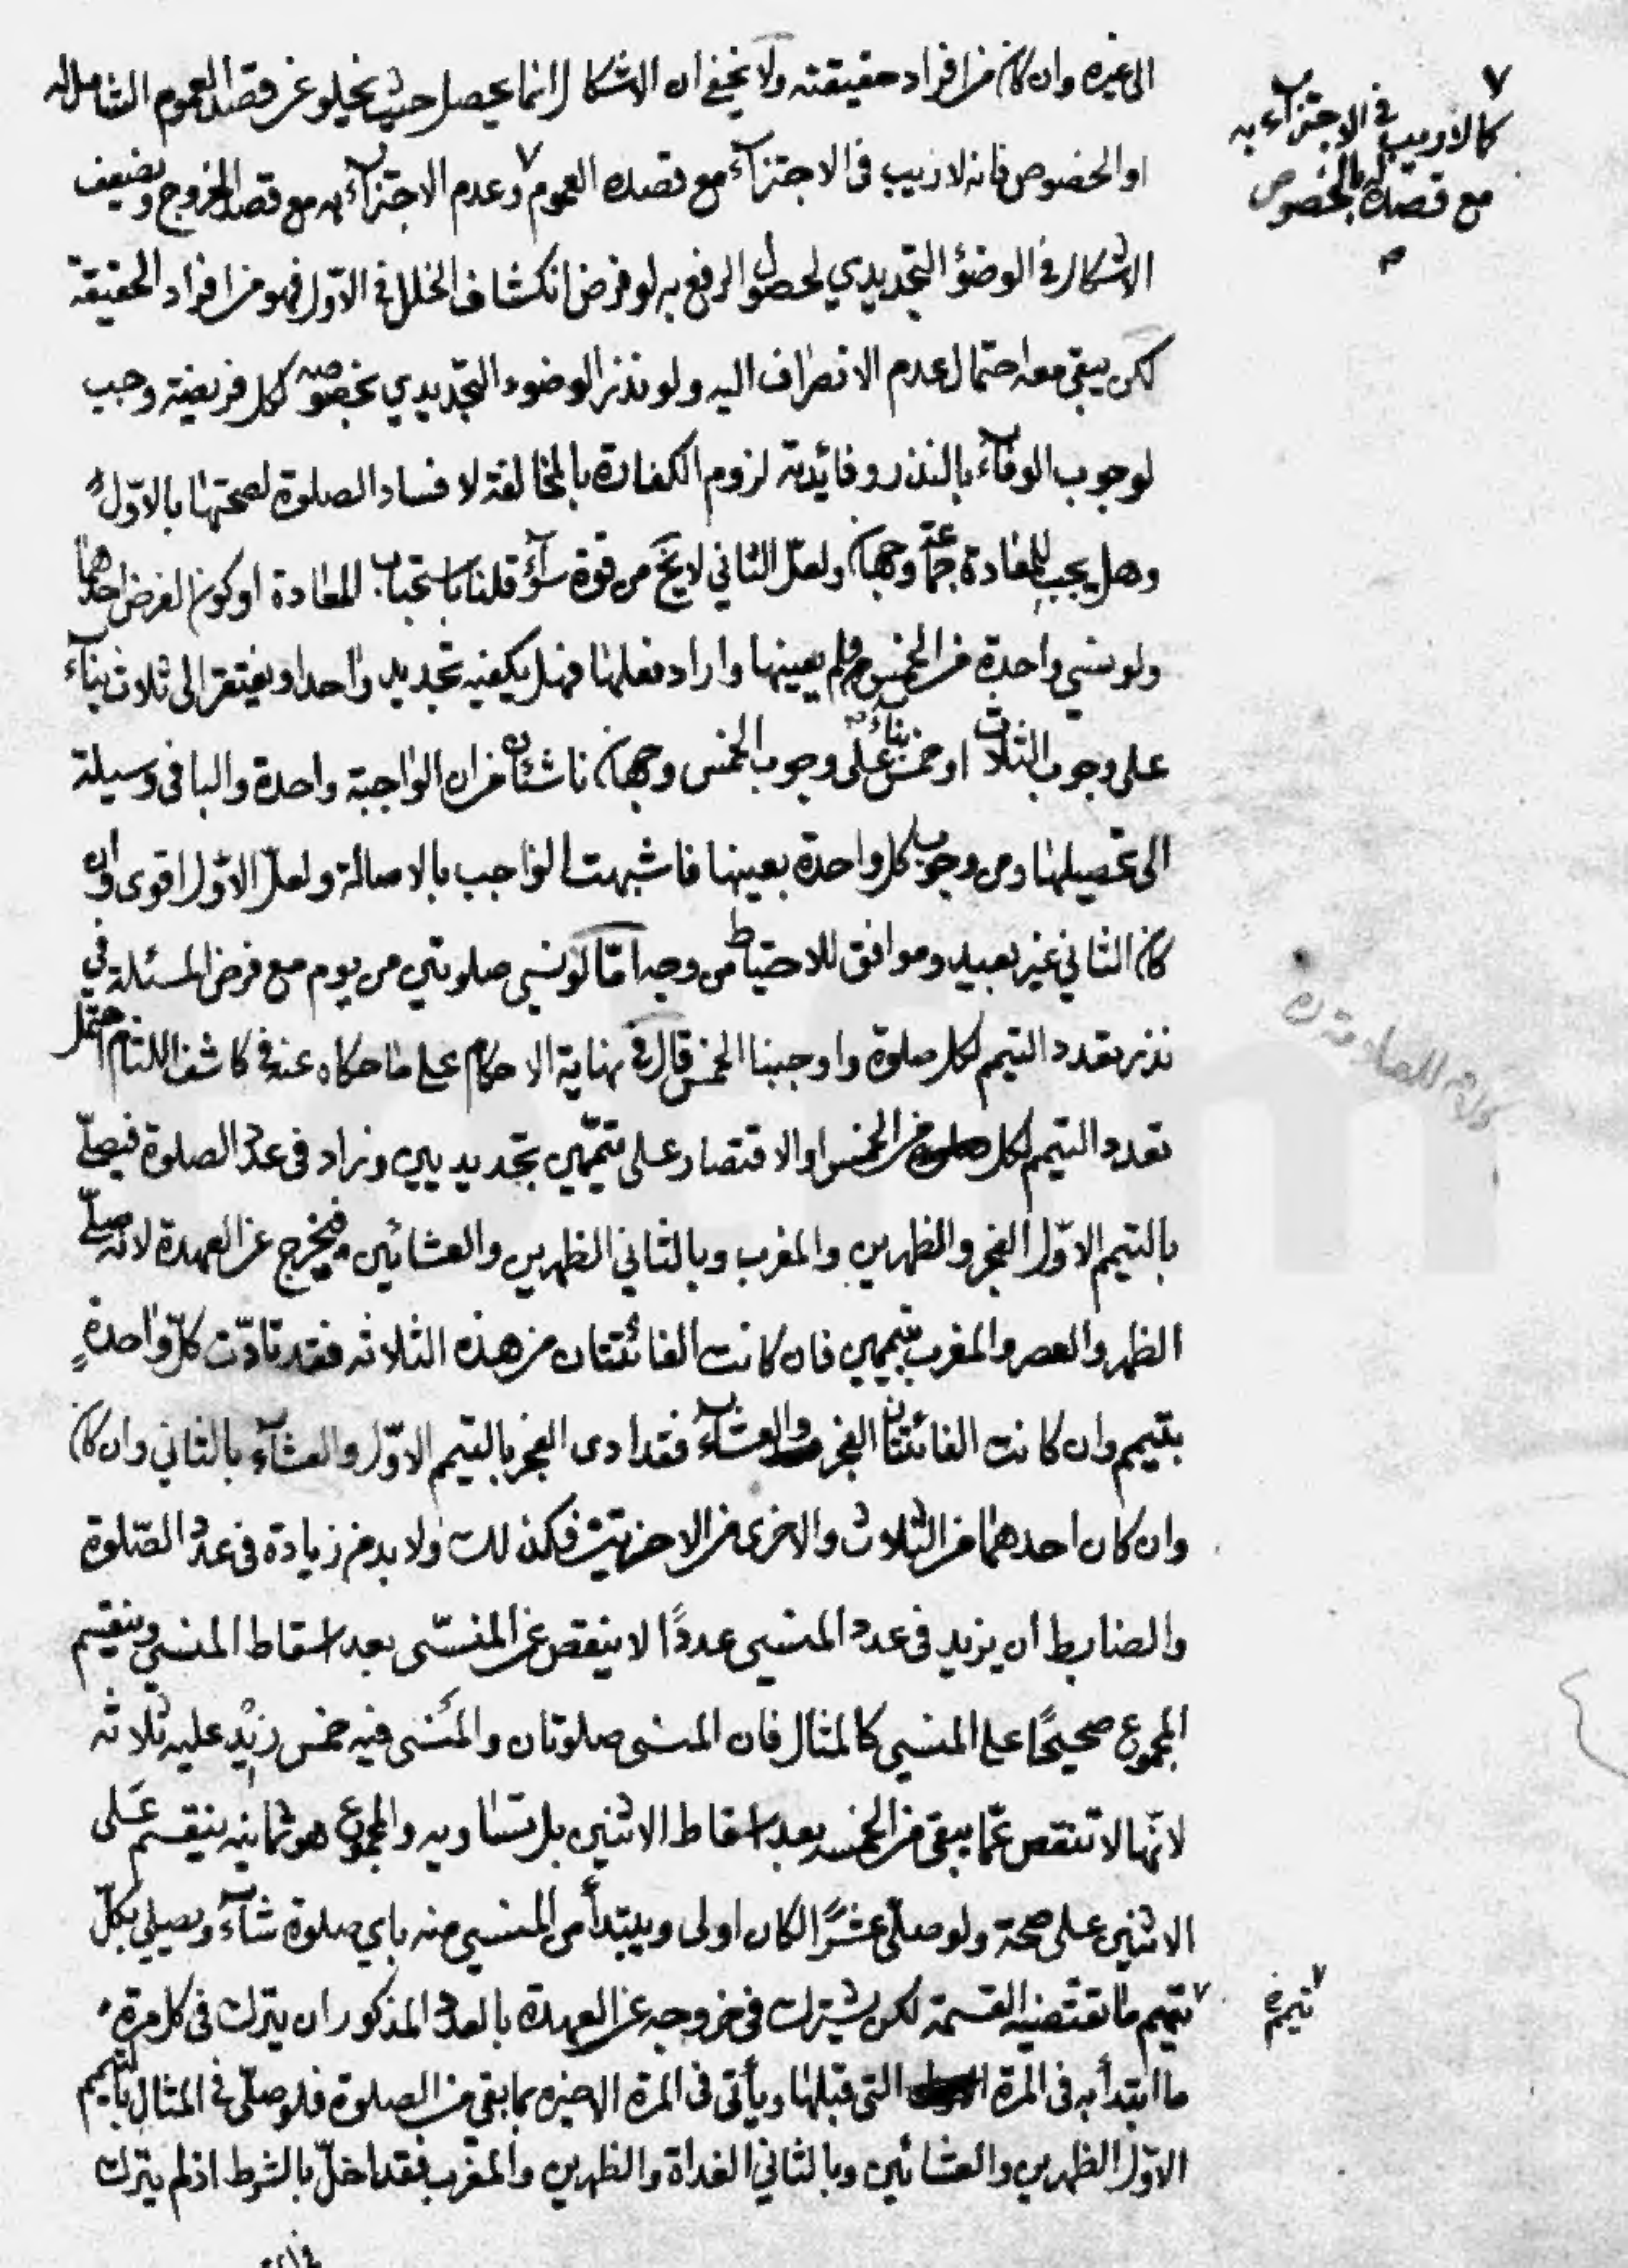 الى غيره وان كان من افراد حقيقته ولا يخفى ان الاشكال انما يحصل حيث يخلو عن قصد العموم الشامل له
او الخصوص فانه لا ريب فى الاجتزآء مع قصده العموم ٧ وعدم الاجتزآء به مع قصد الخروج ويضعف
الاشكال فى الوضؤ التجديدي لحصول الرفع به لو فرض انكشاف الخلل فى الاوّل فهو من افراد الحقيقة
لكن يبقى معه احتمال عدم الانصراف اليه ولو نذر الوضوء التجديدي بخصوصه لكل فريضة وجب
لوجوب الوفآء بالنذر وفائدته لزوم الكفارة بالمخالفة لا فساد الصلوة لصحتها بالاوّل
وهل يجب للمعادة جماعة وجهان ولعلّ الثاني لا يخ من قوة سوآء قلنا باستحباب المعادة او كون الفرض احدهما
ولو نسي واحدة من الخمس ولم يعينها واراد فعلها فهل يكفيه تجديد واحد او يفتقر الى ثلاث بنآء
على وجوب الثلاث او خمس بناء على وجوب الخمس وجهان ناشئان من ان الواجبة واحدة والباقى وسيلة
الى تحصيلها ومن وجوب كل واحدة بعينها فاشبهت الواجب بالاصالة ولعلّ الاوّل اقوى وان
كان الثاني غير بعيد وموافق للاحتياط من وجه امّا لو نسي صلوتين من يوم مع فرض المسئلة في
نذر تعدد التيمم لكل صلوة واوجبنا الخمس قال فى نهاية الاحكام على ما حكاه عنه فى كاشف اللثام احتمل
تعدد التيمم لكل صلوة من الخمس او الاقتصار على تيمّمين تجديديين وزاد فى عدد الصلوة فيصلّي
بالتيمم الاوّل الفجر والظهرين والمغرب وبالثاني الظهرين والعشائين فيخرج عن العهدة لانه صلّى
الظهر والعصر والمغرب بتيممين فان كانت الفائتتان من هذه الثلاثه فقد تادّت كلّ واحدةٍ
بتيمم وان كانت الفائتتان الفجر والعشآء فقد ادى الفجر بالتيمم الاوّل والعشآء بالثاني وان كان
وان كان احدهما من الثلاث والاخرى من الاخرتين فكذلك ولا بد من زيادة فى عدد الصّلوة
والضابط ان يزيد فى عدد المنسي عددًا لا ينقص عن المنسّى بعد اسقاط المنسي وينقسم
المجموع صحيحًا على المنسي كالمثال فان المنسى صلوتان والمنسى فيه خمس زيد عليه ثلاثه
لانّها لا تنقص عمّا يبقى من الخمسه بعد اسقاط الاثنين بل تساويه والمجموع هو ثمانيه ينقسم على
الاثنين على صحة ولو صلّى عشرًا لكان اولى ويبتدأ من المنسي منه باي صلوة شآء ويصلي بكلّ
تيمم ما تقتضيه القسمة لكن يشترك فى خروجه عن العهدة بالعدد المذكور ان يترك فى كل مرة
ما ابتدأ به فى المرة التى قبلها ويأتى فى المرة الاخيره بما بقى من الصلوة فلو صلّى فى المثال بالتيمم
الاوّل الظهرين والعشائين وبالثاني الغداة والظهرين والمغرب فقد اخلّ بالشرط اذ لم يترك
٧
كالاريب فى الاجتزآء به
مع قصده له بالخصوص
م